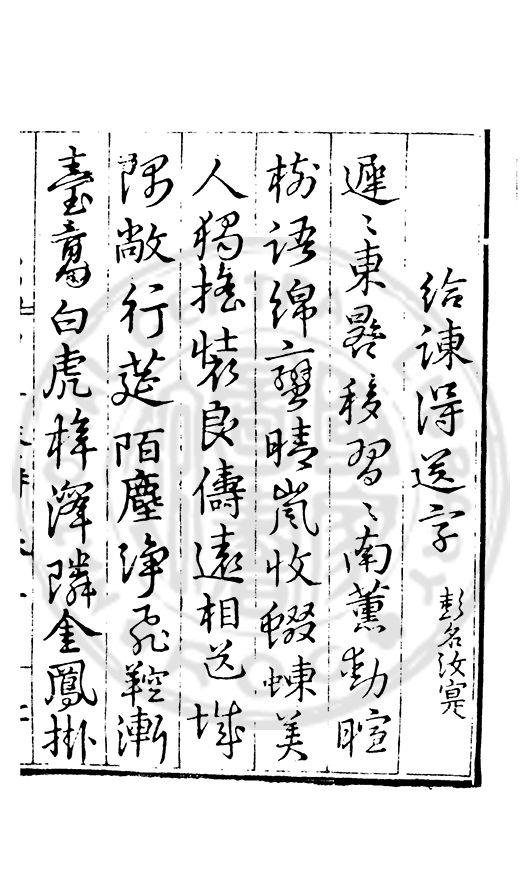 給諫得送字 彭名汝寔
遲〻東晷移習〻南薰動暄
樹語綿蠻晴嵐收蝃蝀美
人獨搖裝良儔遠相送城
隅敞行莚陌塵淨飛鞚漸
臺翥白虎梓澤隣金鳳掛